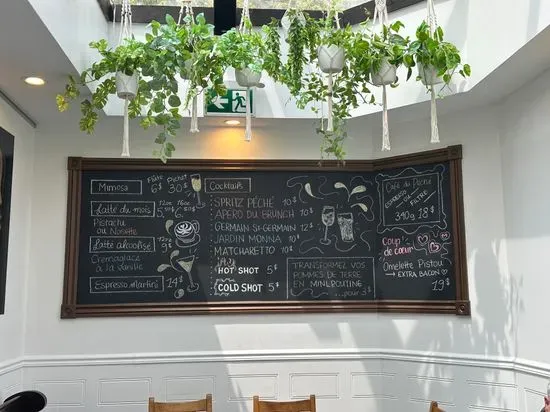 Flûte Pichet
Mimosa 6$ 30$
Latté du mois 12oz 16oz
Pistachu
ou Noisette
Latté alcoolisé 12oz
Cremaglace
à la vanille
Espresso martini 14$
Cocktails
SPRITZ PÊCHÉ 10$
APERO DU BRUNCH 10$
GERMAIN ST-GERMAIN 12$
JARDIN MONNA 10$
MATCHARETTO 10$
HOT SHOT 5$
COLD SHOT 5$
TRANSFORMEZ VOS
POMMES DE TERRE
EN MINI POUTINE
...pour 3$
Café du Péché
ESPRESSO
FILTRE
340g 18$
Coup
de coeur
Omelette Pistou
→ EXTRA BACON
19$